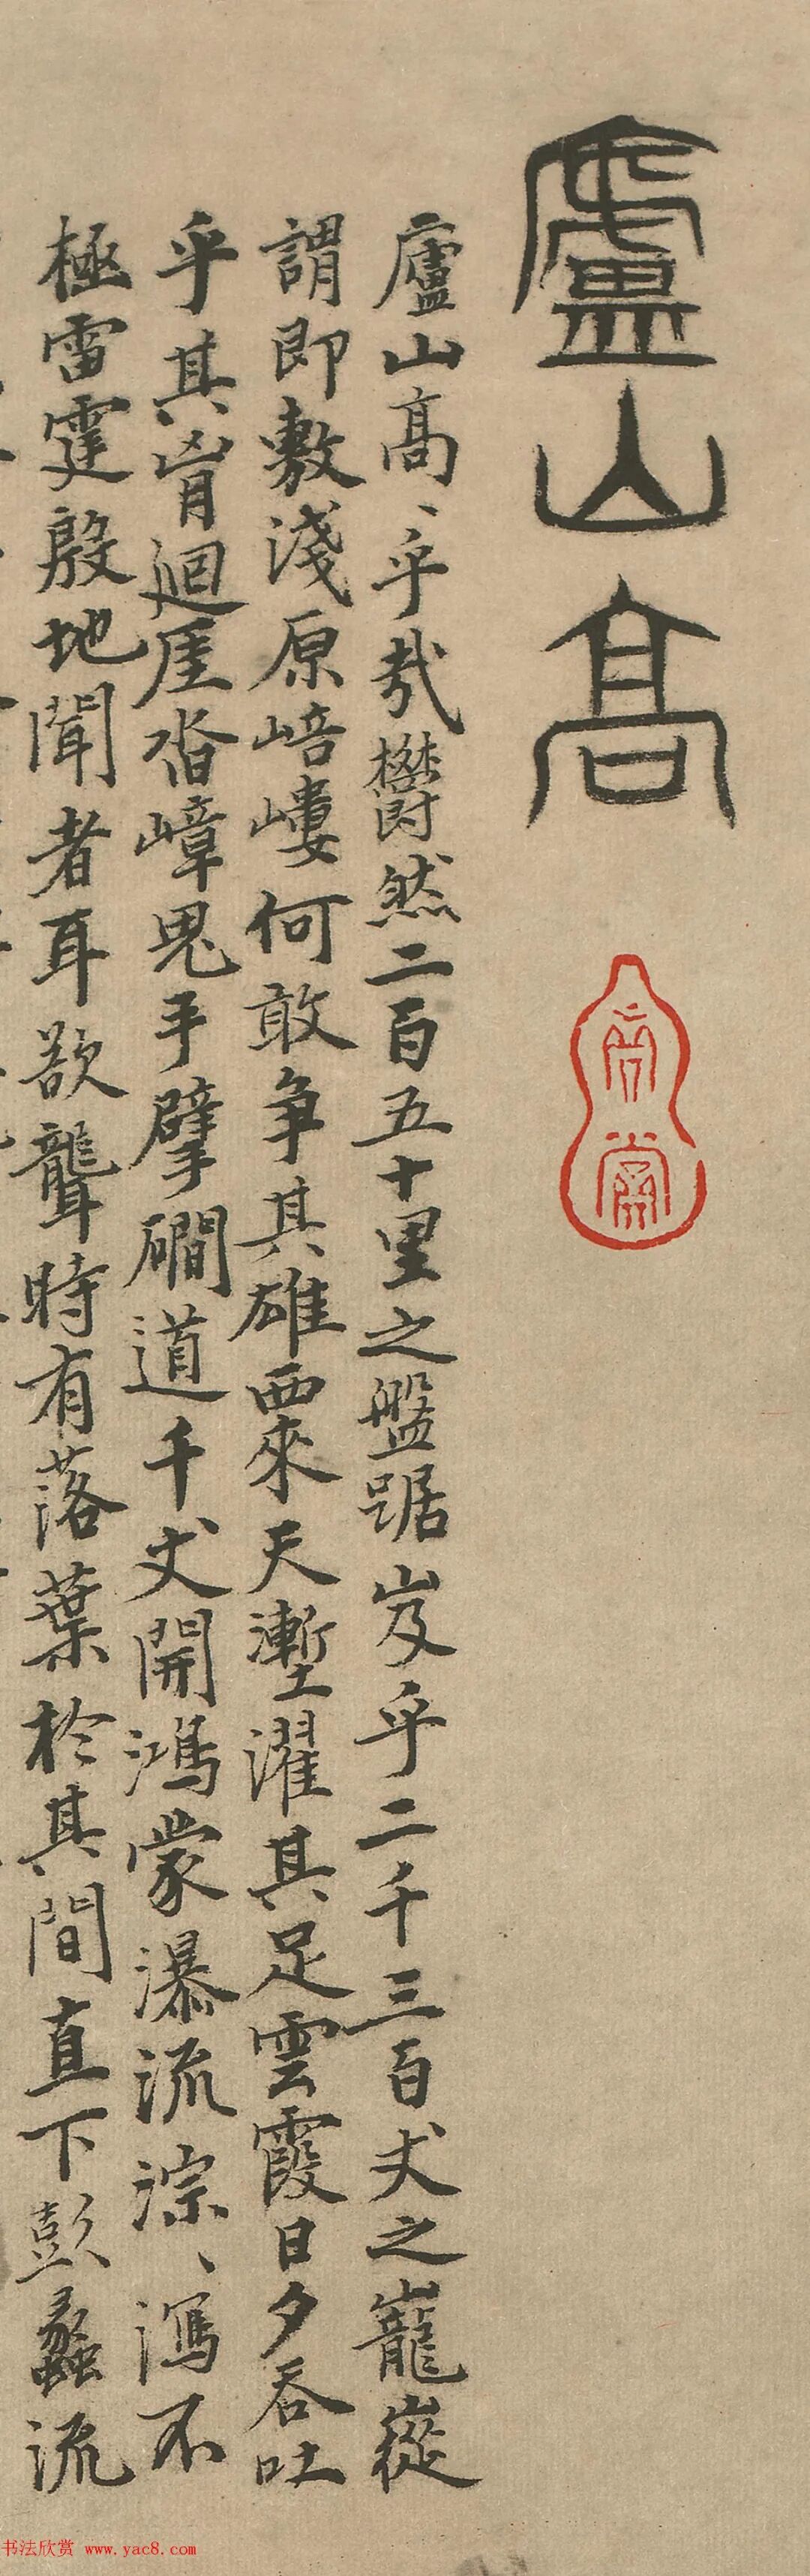 廬山高
廬山高、乎哉欝然二百五十里之盤踞岌乎二千三百丈之巃嵸
謂即敷淺原㟝嶁何敢争其雄西來天塹濯其足雲霞日夕吞吐
乎其胷迴厓沓嶂鬼手擘磵道千丈開鴻蒙瀑流淙、瀉不
極雷霆殷地聞者耳欲聾時有落葉於其間直下彭蠡流
书法欣赏 www.yac8.com